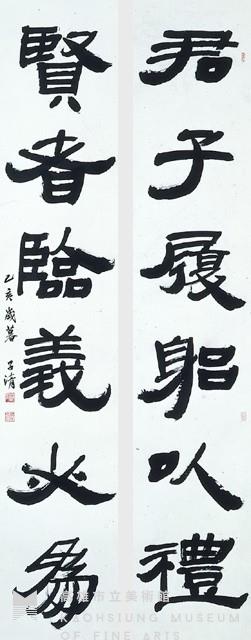 君子履躳以禮
賢者臨義必為
乙亥歲暮
高雄市立美術館
KAOHSIUNG MUSEUM
OF FINE ARTS